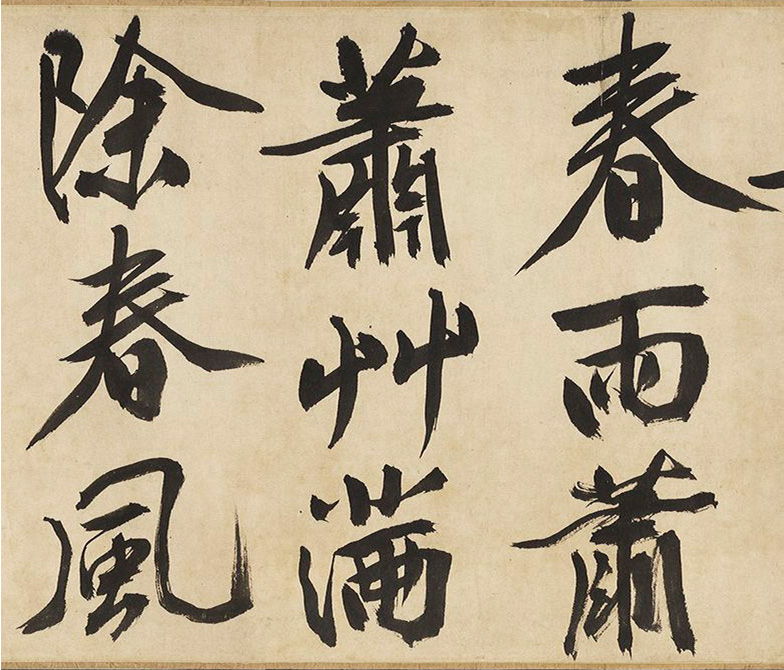 春雨蕭
蕭艸滿
除春風